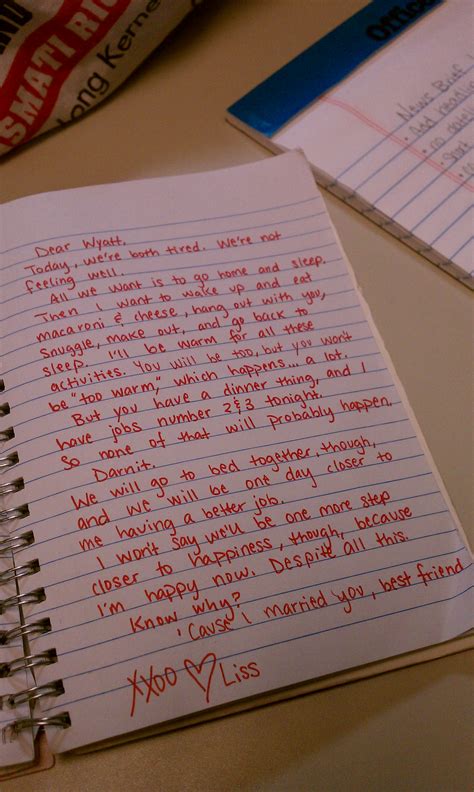 SMATI RIC
ong Kerne
Office
News Brief
Dear Wyatt,
Today, we're both tired. We're not
feeling well.
All we want is to go home and sleep.
Then I want to wake up and eat
macaroni & cheese, hang out with you,
snuggie, make out, and go back to
sleep. I'll be warm for all these
activities. You will be too, but you won't
be "too warm," which happens... a lot.
But you have a dinner thing, and I
have jobs number 2 & 3 tonight.
So none of that will probably happen.
Darnit.
We will go to bed together, though,
and we will be one day closer to
me having a better job.
I won't say we'll be one more step
closer to happiness, though, because
I'm happy now. Despite all this.
Know why?
'Cause I married you, best friend
XXOO ♡ Liss